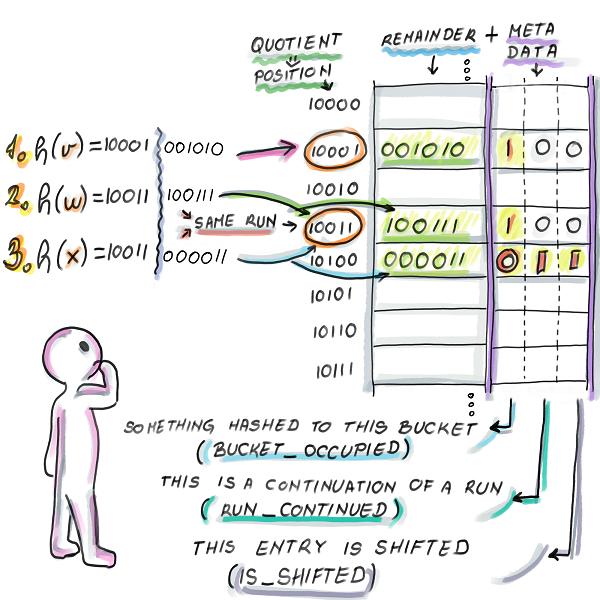 QUOTIENT
=
POSITION
REMAINDER + META
DATA
10000
1. h(v) = 10001 001010
10001
001010 1 0 0
10010
2. h(w) = 10011 100111
SAME RUN
10011
100111 1 0 0
3. h(x) = 10011 000011
10100
000011 0 1 1
10101
10110
10111
SOMETHING HASHED TO THIS BUCKET
(BUCKET_OCCUPIED)
THIS IS A CONTINUATION OF A RUN
(RUN_CONTINUED)
THIS ENTRY IS SHIFTED
(IS_SHIFTED)